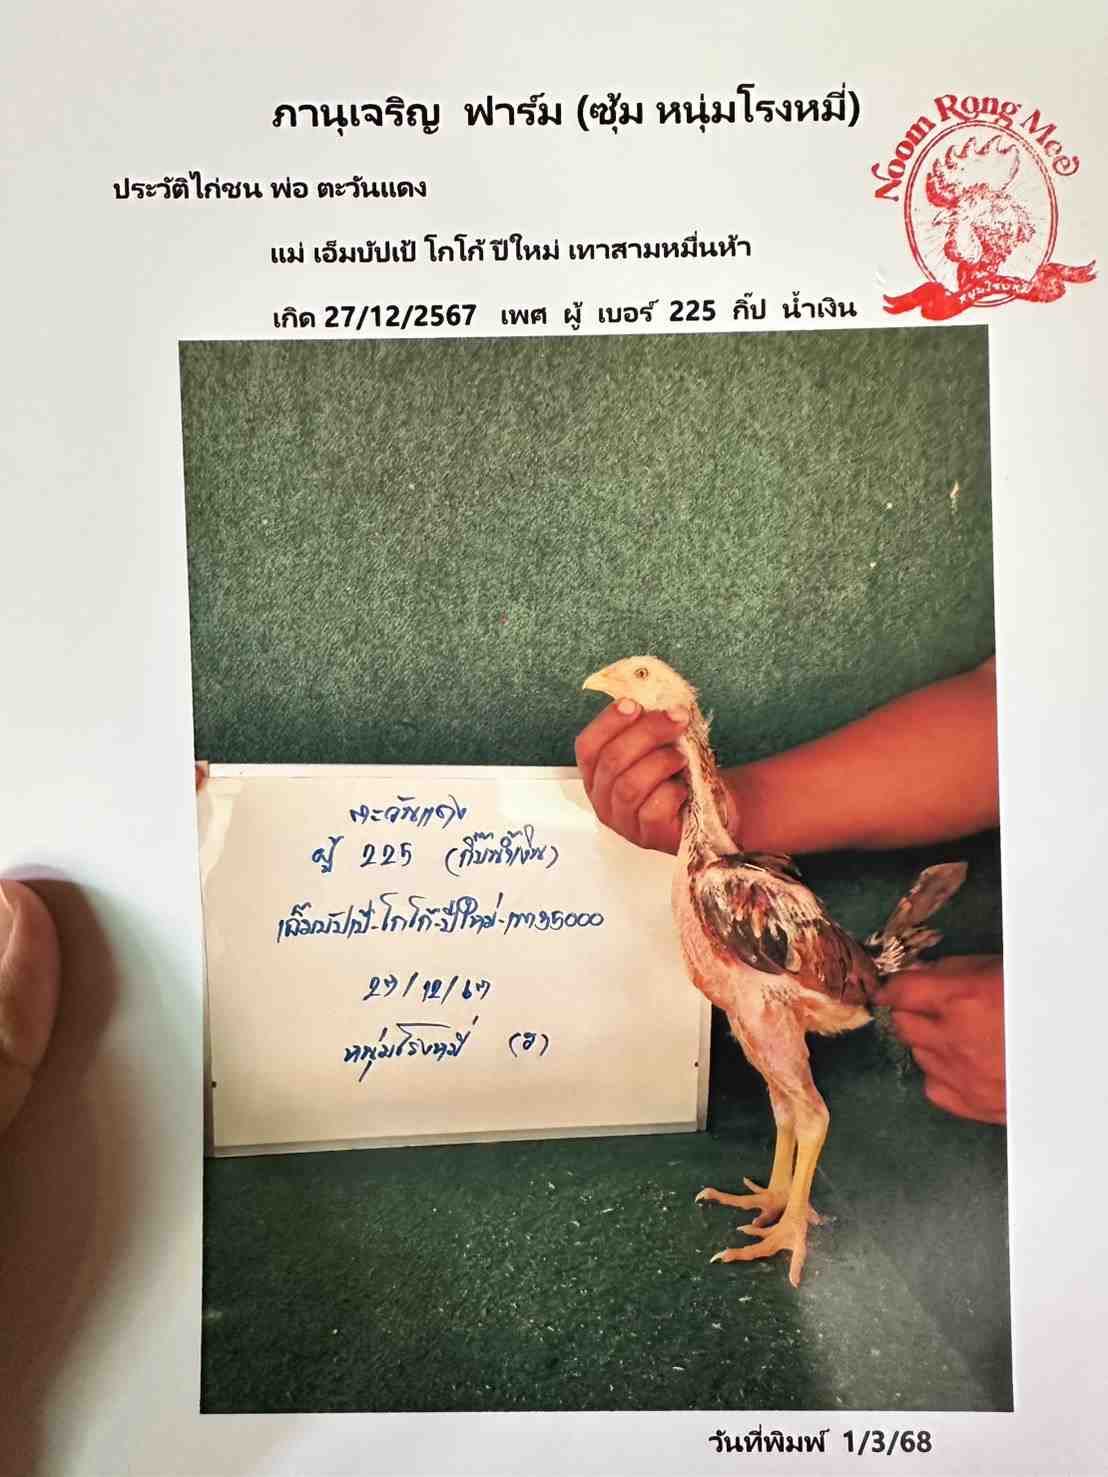 ภานุเจริญ ฟาร์ม (ซุ้ม หนุ่มโรงหมี่)
Noom Rong Mee
ประวัติไก่ชน พ่อ ตะวันแดง
แม่ เอ็มบัปเป้ โกโก้ ปีใหม่ เทาสามหมื่นห้า
หนุ่มโรงหมี่
เกิด 27/12/2567 เพศ ผู้ เบอร์ 225 กิ๊ป น้ำเงิน
ตะวันแดง
ผู้ 225 (กิ๊ปน้ำเงิน)
เอ็มบัปเป้-โกโก้-ปีใหม่-เทา35000
27/12/67
หนุ่มโรงหมี่
วันที่พิมพ์ 1/3/68